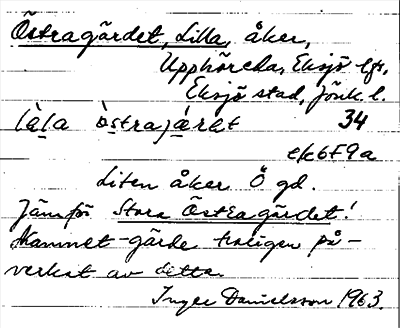 Östragärdet, Lilla, åker,
Upphöreda, Eksjö lfs,
Eksjö stad, Jönk. l.
làla òstrajä́rət 34
ek 6F9a
Liten åker Ö gd.
Jämför Stora Östragärdet!
Namnet -gärde troligen på-
verkat av detta.
Inger Danielsson 1963.